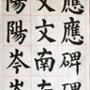 應應碑碑
文文南南
陽陽岑岑